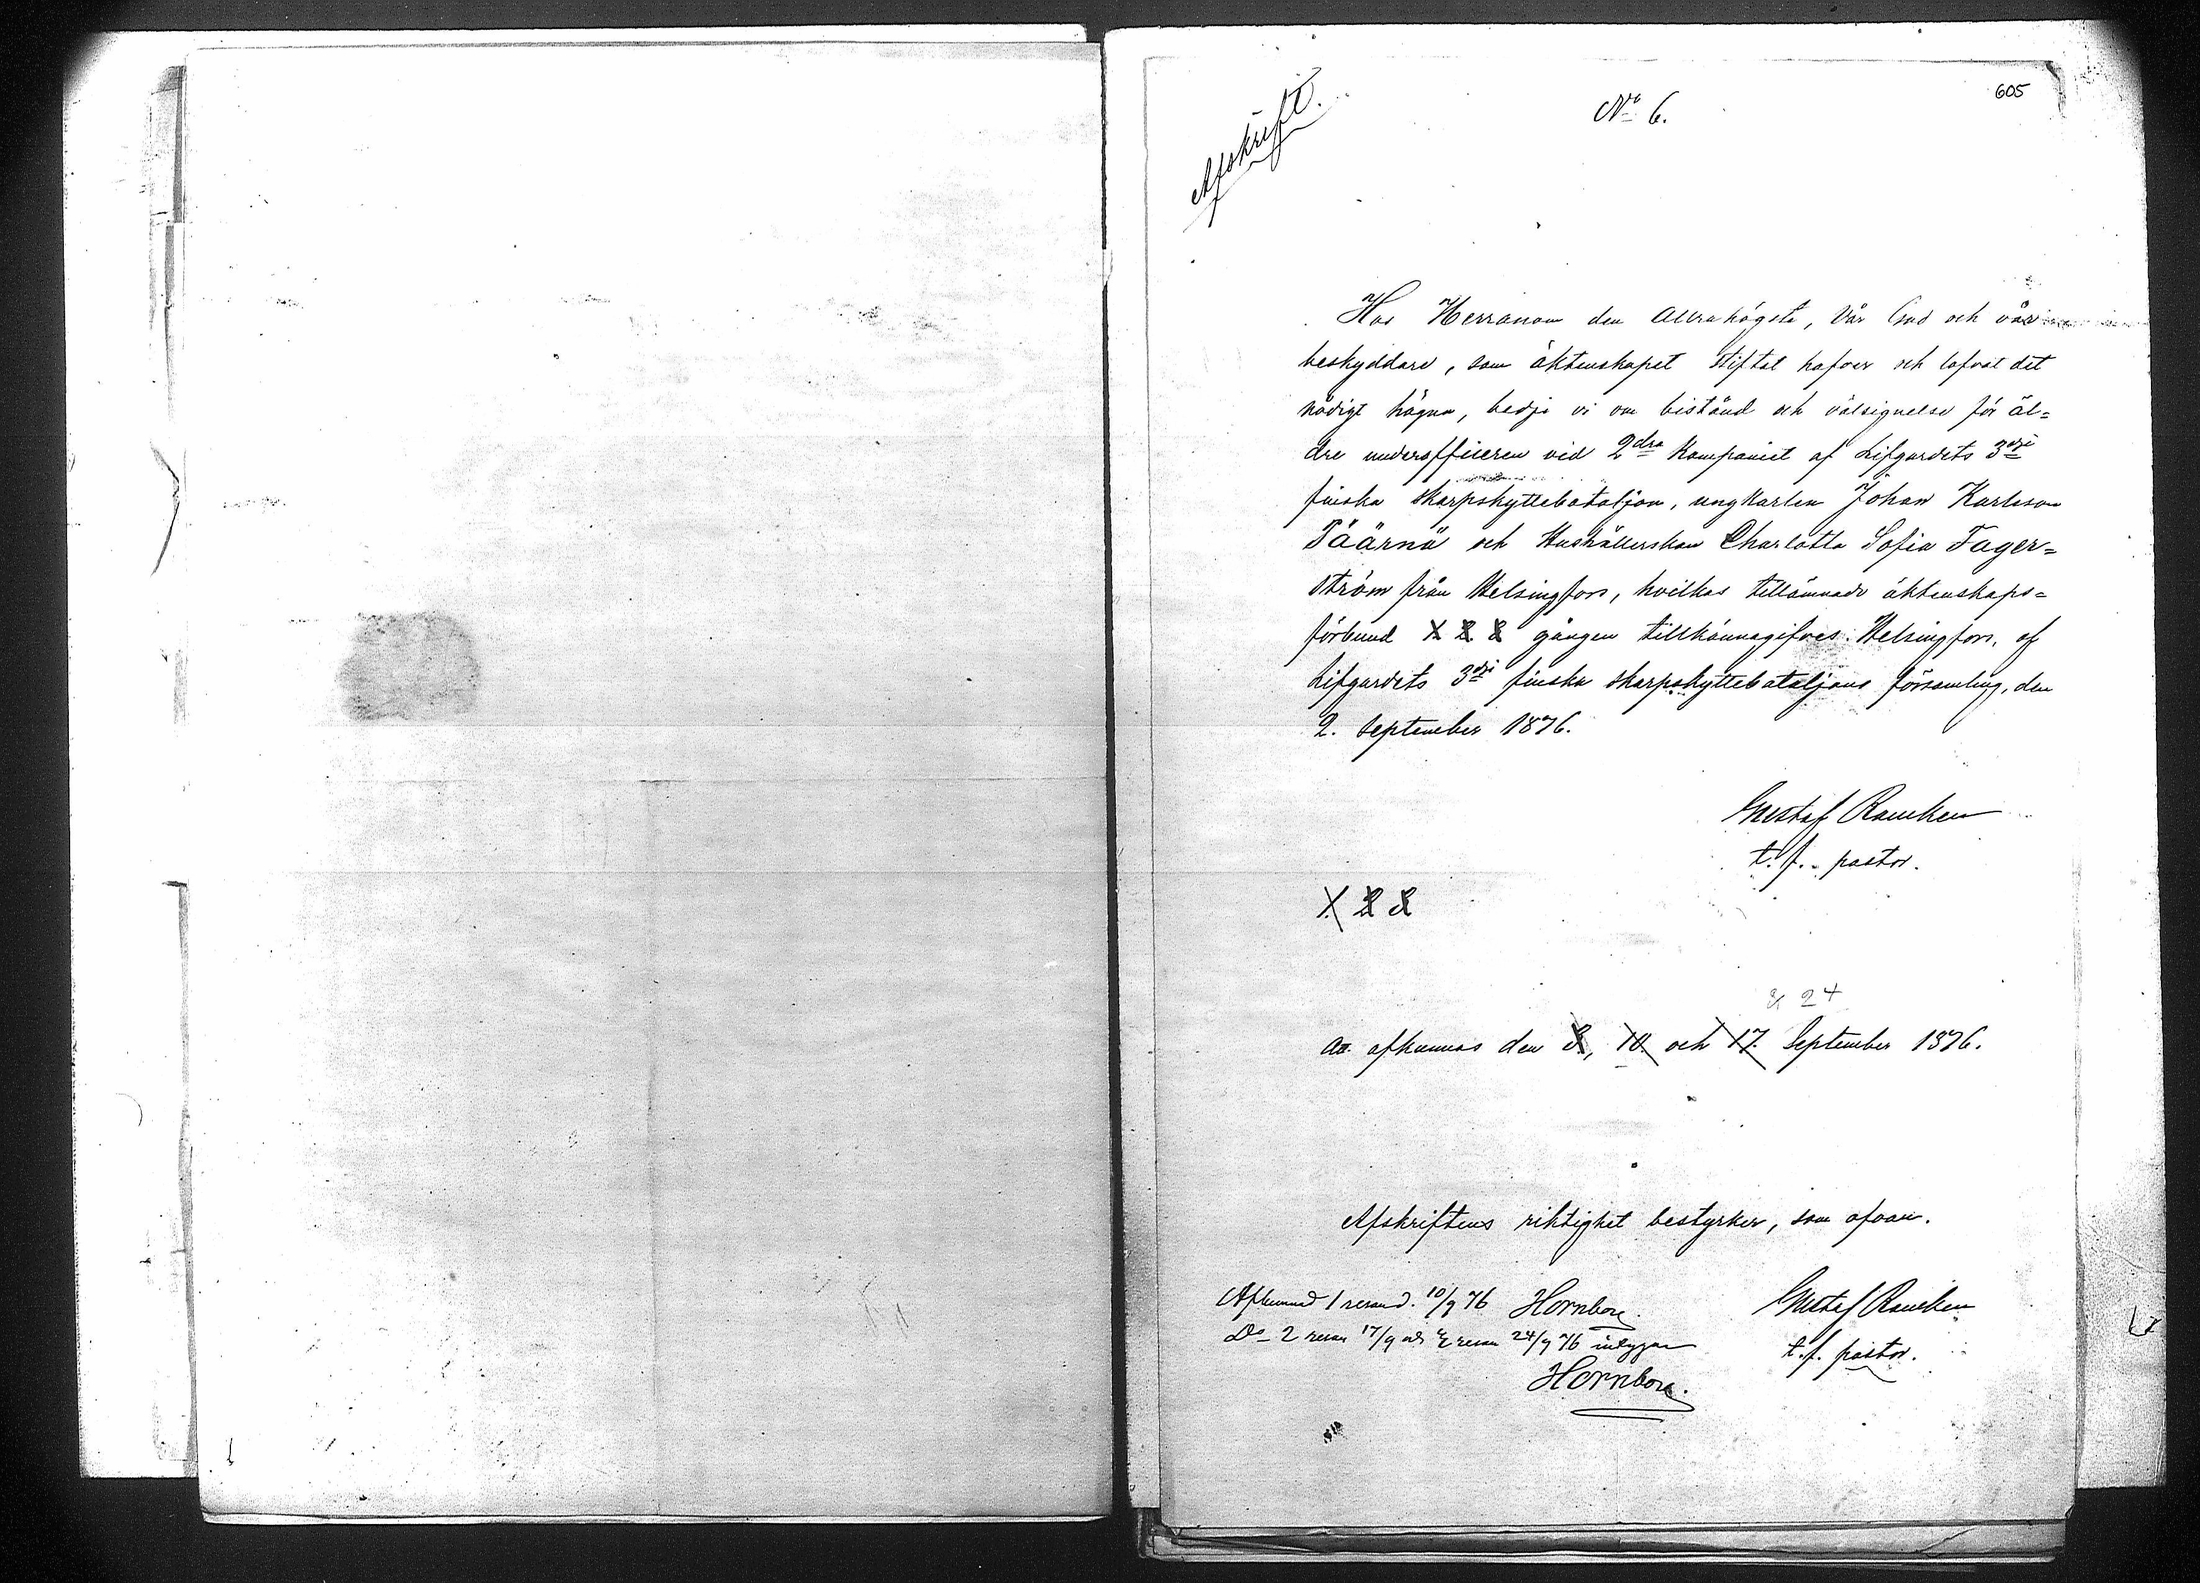 605
Afskrift.
No 6.
Hos Herranom den Allrahögste, Vår Gud och vår
beskyddare, som äktenskapet stiftat hafver och lofvat det
nådigt hägna, bedje vi om bistånd och välsignelse för äl=
dre underofficeren vid 2dra Kompaniet af Lifgardets 3dje
finska skarpskyttebataljon, ungkarlen Johan Karlsson
Päärnä och Hushållerskan Charlotta Sofia Fager=
ström från Helsingfors, hvilkas tillämnade äktenskaps=
förbund 1 2 3 gången tillkännagifves. Helsingfors, af
Lifgardets 3dje finska skarpskyttebataljons församling, den
2. September 1876.
Gustaf Rancken
t. f. pastor.
1. 2 3
& 24
att afkunnas den 3, 10 och 17. September 1876.
Afskriftens riktighet bestyrker, som ofvan.
Gustaf Rancken
t. f. pastor.
Afkunnad 1 resan d. 10/9 76 Hornborg.
Do 2 resan 17/9 och 3 resan 24/9 76 intygar
Hornborg.